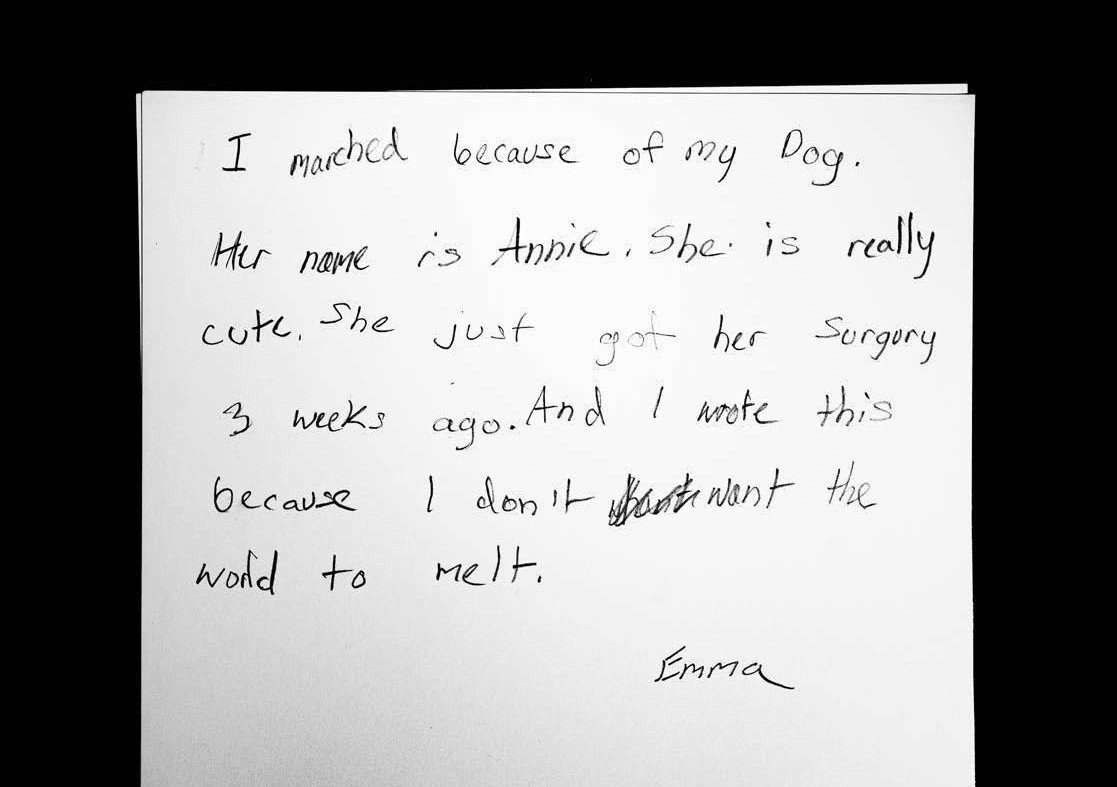 I marched because of my Dog.
Her name is Annie. She is really
cute. She just got her Surgory
3 weeks ago. And I wrote this
because I don't want the
world to melt.
Emma